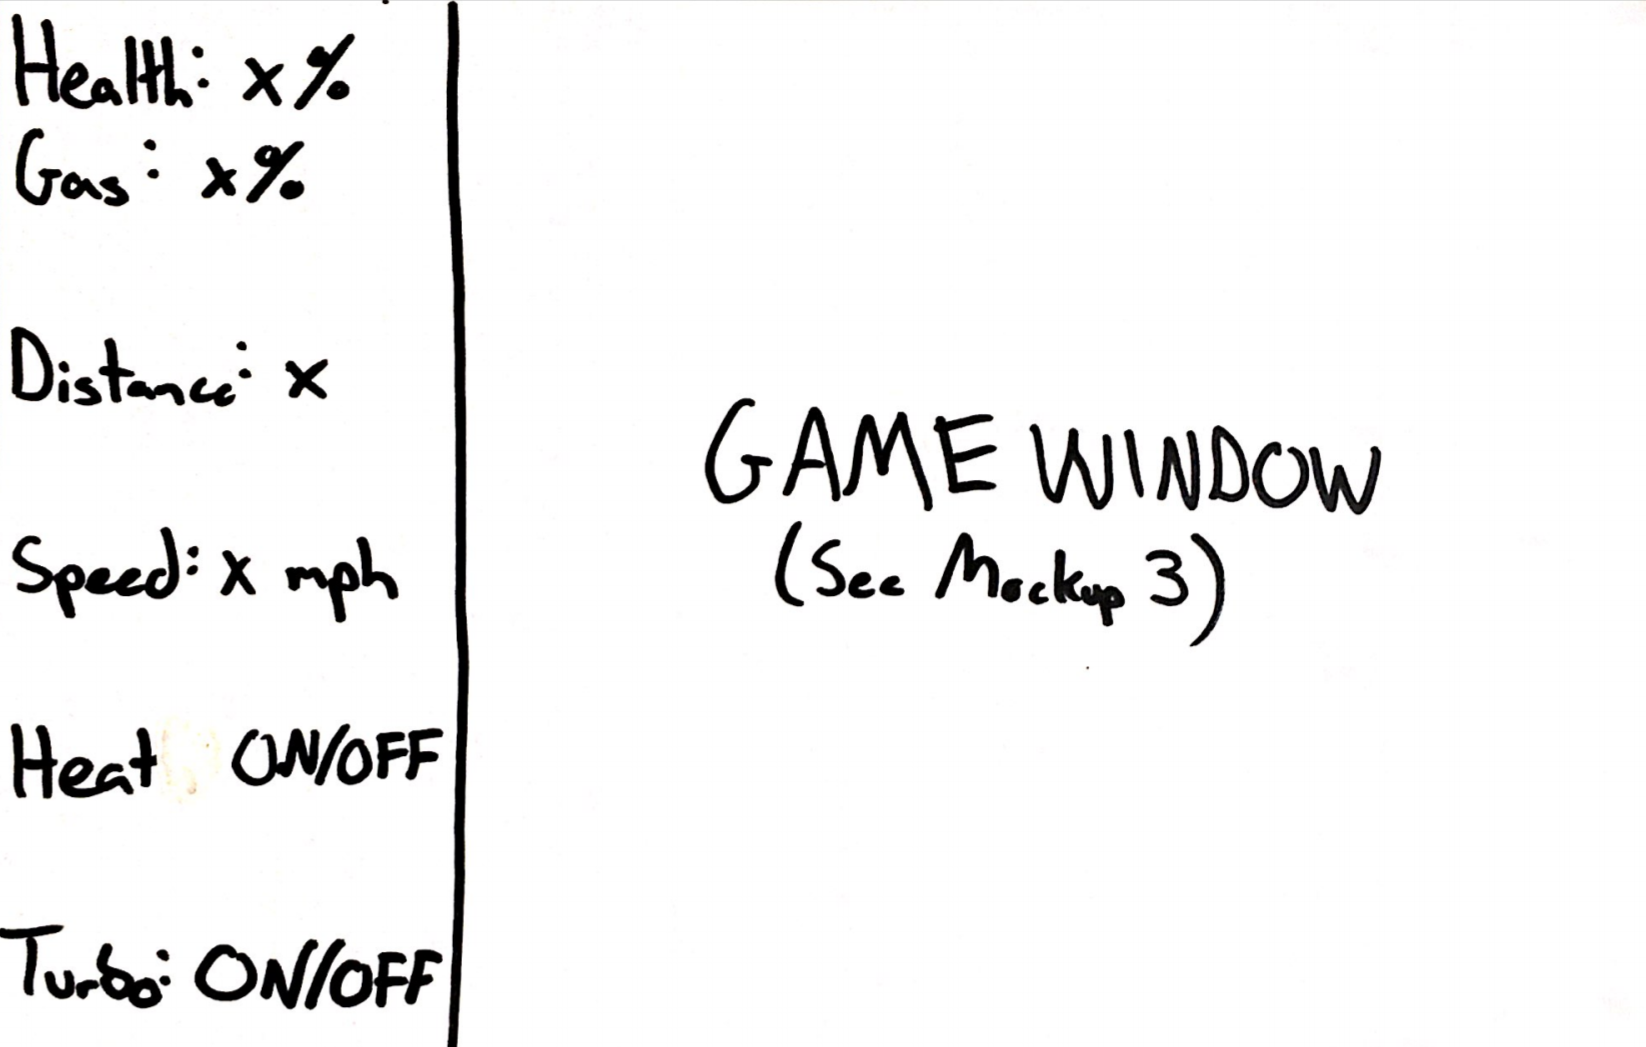 Health: x%
Gas: x%
Distance: x
Speed: x mph
Heat ON/OFF
Turbo: ON/OFF
GAME WINDOW
(See Mockup 3)